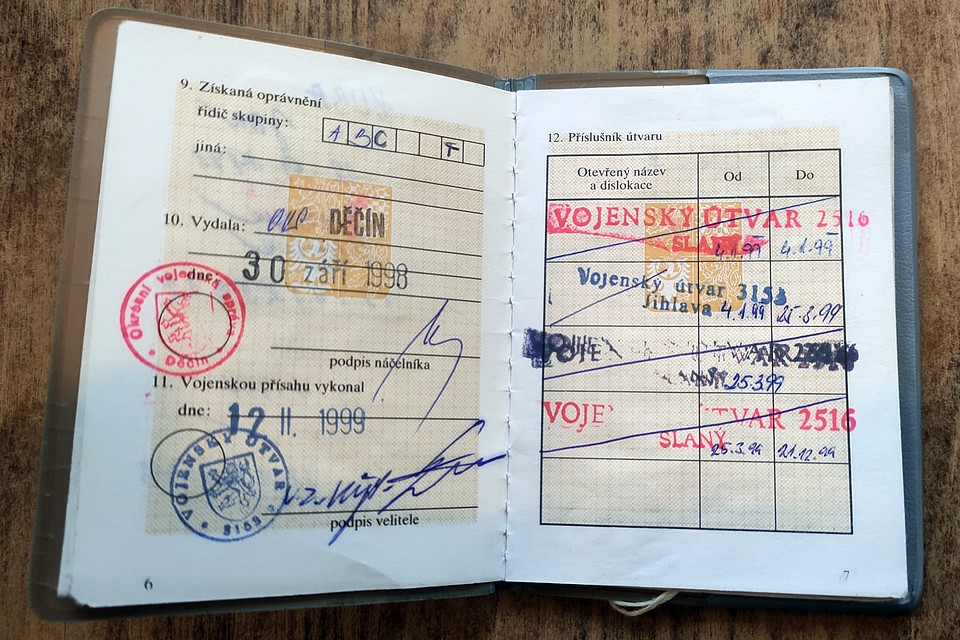 9. Získaná oprávnění
řidič skupiny: A B C T
jiná:
10. Vydala: DĚČÍN
30 září 1998
Okresní vojenská správa
Děčín
podpis náčelníka
11. Vojenskou přísahu vykonal
dne: 12 II. 1999
VOJENSKÝ ÚTVAR
podpis velitele
6
12. Příslušník útvaru
Otevřený název
a dislokace
Od
Do
VOJENSKÝ ÚTVAR 2516
SLANÝ 4.1.99 4.1.99
Vojenský útvar 3153
Jihlava 4.1.99 25.3.99
25.3.99
VOJE ÚTVAR 2516
SLANÝ 25.3.99 21.12.99
7